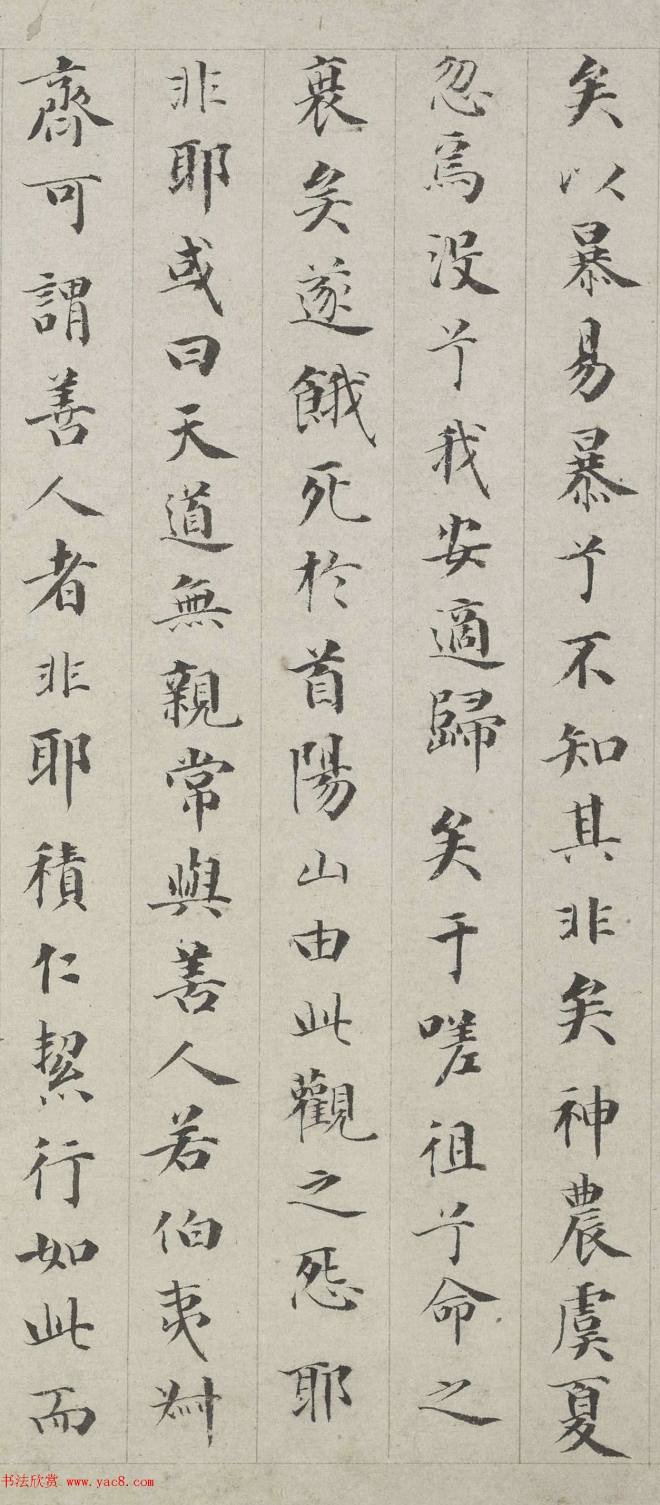 矣以暴易暴兮不知其非矣神農虞夏
忽焉没兮我安適歸矣于嗟徂兮命之
衰矣遂餓死於首陽山由此觀之怨耶
非耶或曰天道無親常與善人若伯夷叔
齊可謂善人者非耶積仁絜行如此而
书法欣赏 www.yac8.com